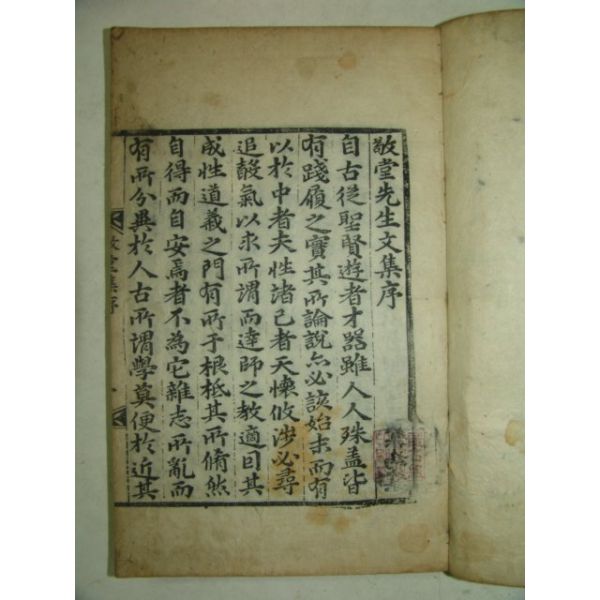 敬堂先生文集序
自古從聖賢遊者才器雖人人殊蓋皆
有踐履之實其所論說亦必該始末而有
以於中者夫性諸己者天懷攸涉必尋
追酸氣以求所謂而達師之敎適因其
成性道義之門有所于根柢其所脩然
自得而自安焉者不為它雜志所亂而
有所分異於人古所謂學莫便於近其
敬堂集序
一